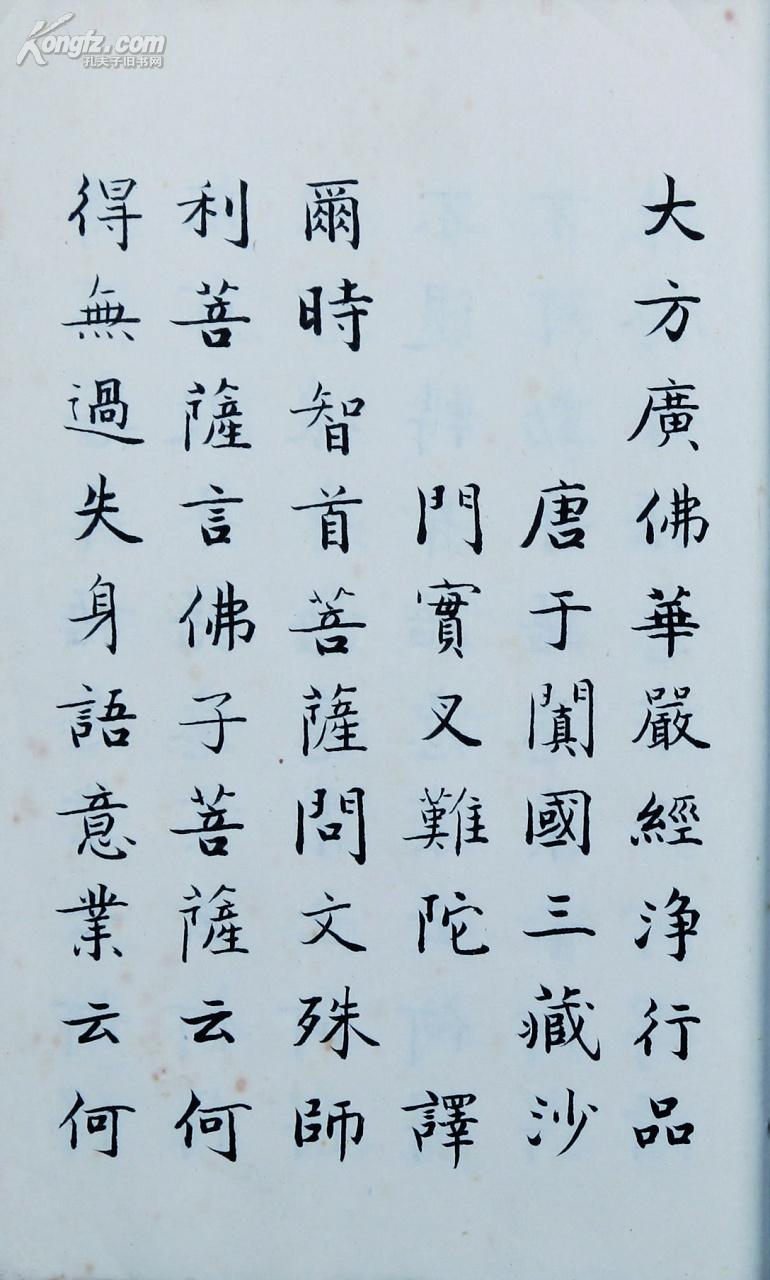 大方廣佛華嚴經淨行品
唐于闐國三藏沙
門實叉難陀 譯
爾時智首菩薩問文殊師
利菩薩言佛子菩薩云何
得無過失身語意業云何
Kongfz.com
孔夫子旧书网